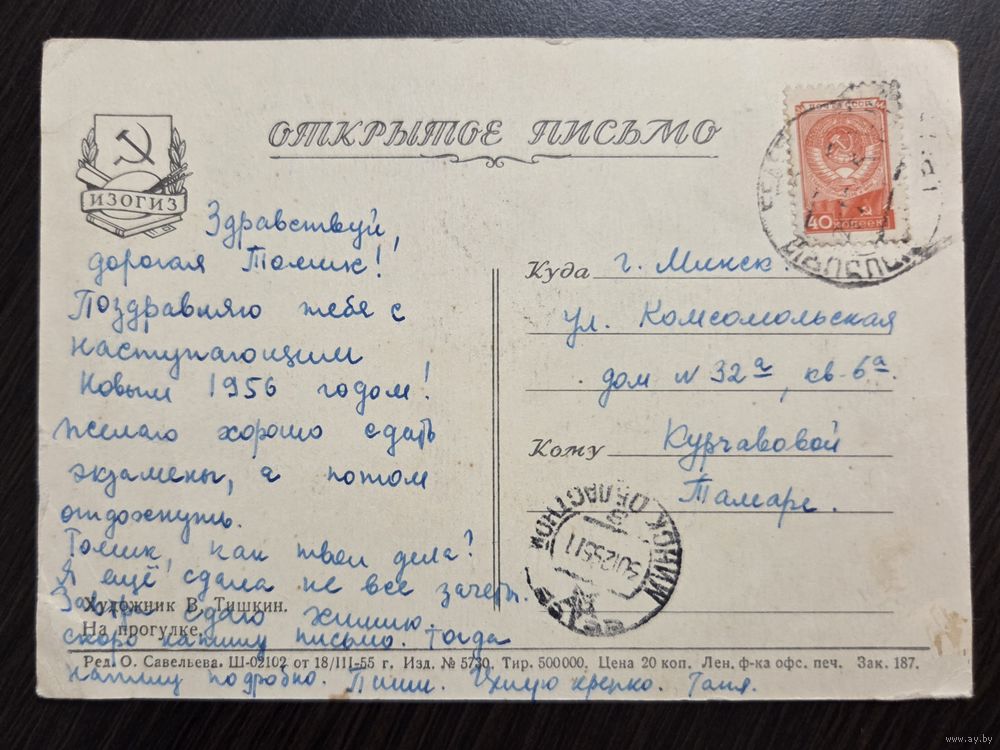 ОТКРЫТОЕ ПИСЬМО
ИЗОГИЗ
ПОЧТА СССР
40 КОПЕЕК
Здравствуй,
дорогая Томик!
Поздравляю тебя с
наступающим
Новым 1956 годом!
Желаю хорошо сдать
экзамены, а потом
отдохнуть.
Томик, как твои дела?
Я ещё сдала не все зачеты.
Завтра сдаю химию.
Скоро напишу письмо. Тогда
напишу подробно. Пиши. Целую крепко. Таня.
Куда г. Минск
ул. Комсомольская
дом № 32а, кв. 6а.
Кому Курчавовой
Тамаре.
МИНСК ОБЛАСТНОЙ
Художник В. Тишкин.
На прогулке.
Ред. О. Савельева. Ш-02102 от 18/III-55 г. Изд. № 5730. Тир. 500000. Цена 20 коп. Лен. ф-ка офс. печ. Зак. 187.
www.ay.by